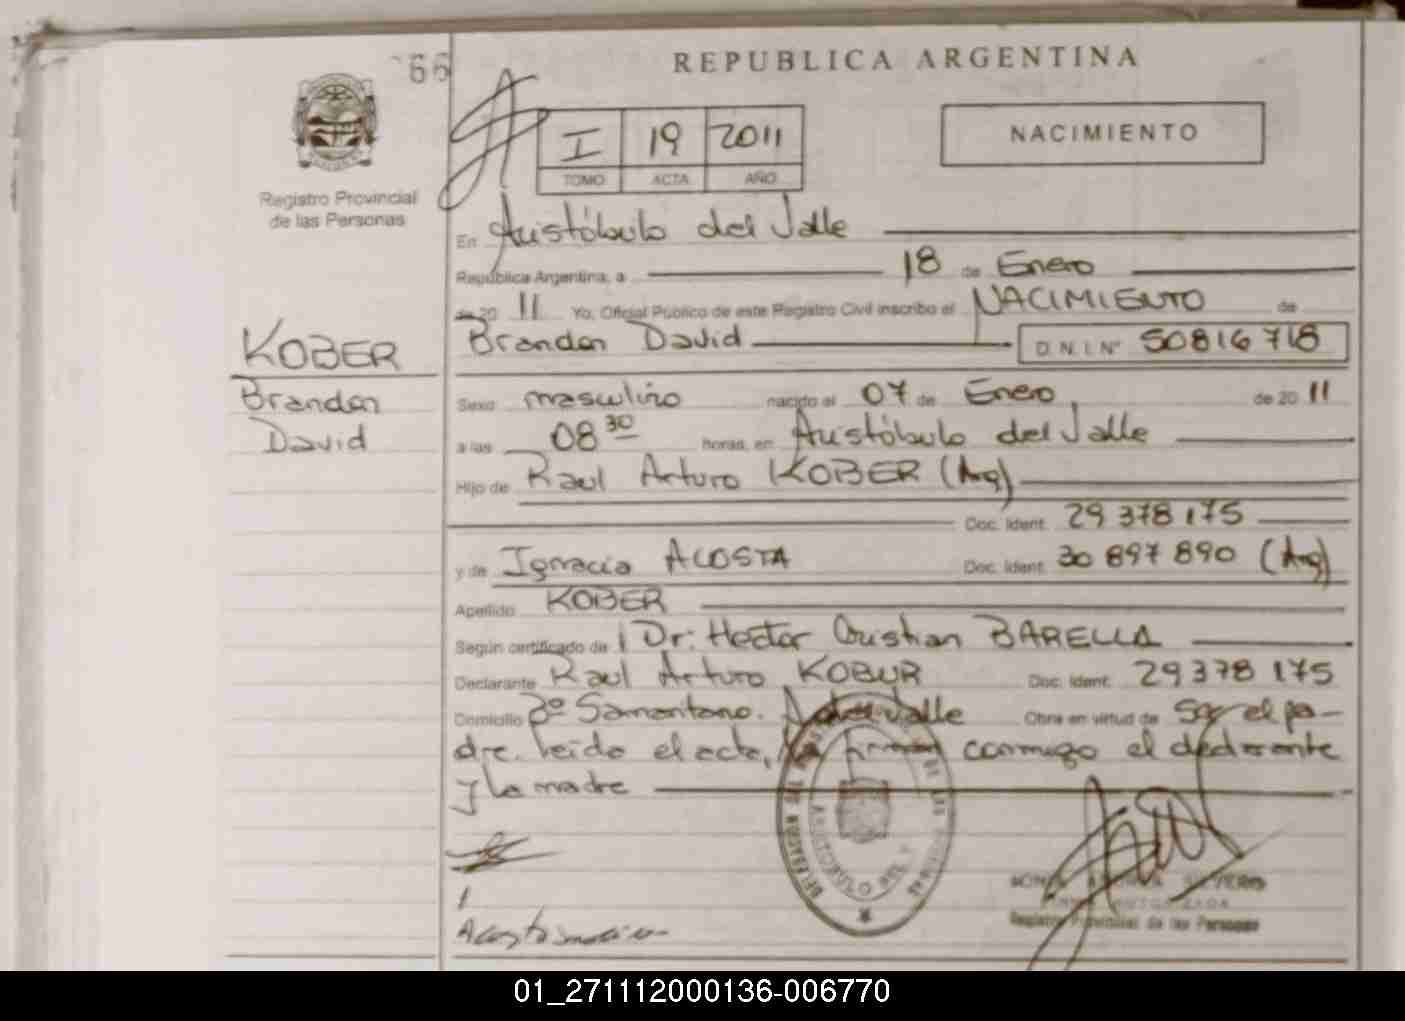 66
REPUBLICA ARGENTINA
I 19 2011
TOMO ACTA AÑO
NACIMIENTO
Registro Provincial
de las Personas
En Aristóbulo del Valle
República Argentina, a 18 de Enero
de 20 11 Yo, Oficial Público de este Registro Civil inscribo el NACIMIENTO de
Brandon David D.N.I. N° 50816718
KOBER
Brandon
David
Sexo masculino nacido el 07 de Enero de 20 11
a las 08 30 horas, en Aristóbulo del Valle
Hijo de Raul Arturo KOBER (Arg)
Doc. Ident. 29 378 175
y de Ignacia ACOSTA Doc. Ident. 30 897 890 (Arg)
Apellido KOBER
Según certificado de Dr: Hector Cristian BARELLA
Declarante Raul Arturo KOBUR Doc. Ident. 29378 175
Domicilio Bº Samaritano. del Valle Obra en virtud de Ser el pa-
dre. Leido el acta, la firman conmigo el declarante
y la madre
SILVERO
Registro Provincial de las Personas
01_271112000136-006770